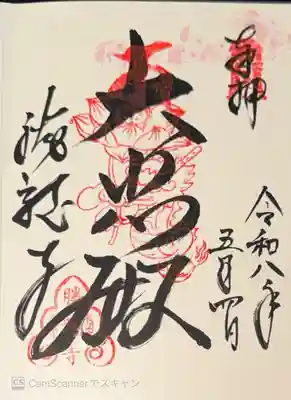 奉拝
令和八年
五月四日
大悲殿
勝龍寺
CS CamScannerでスキャン